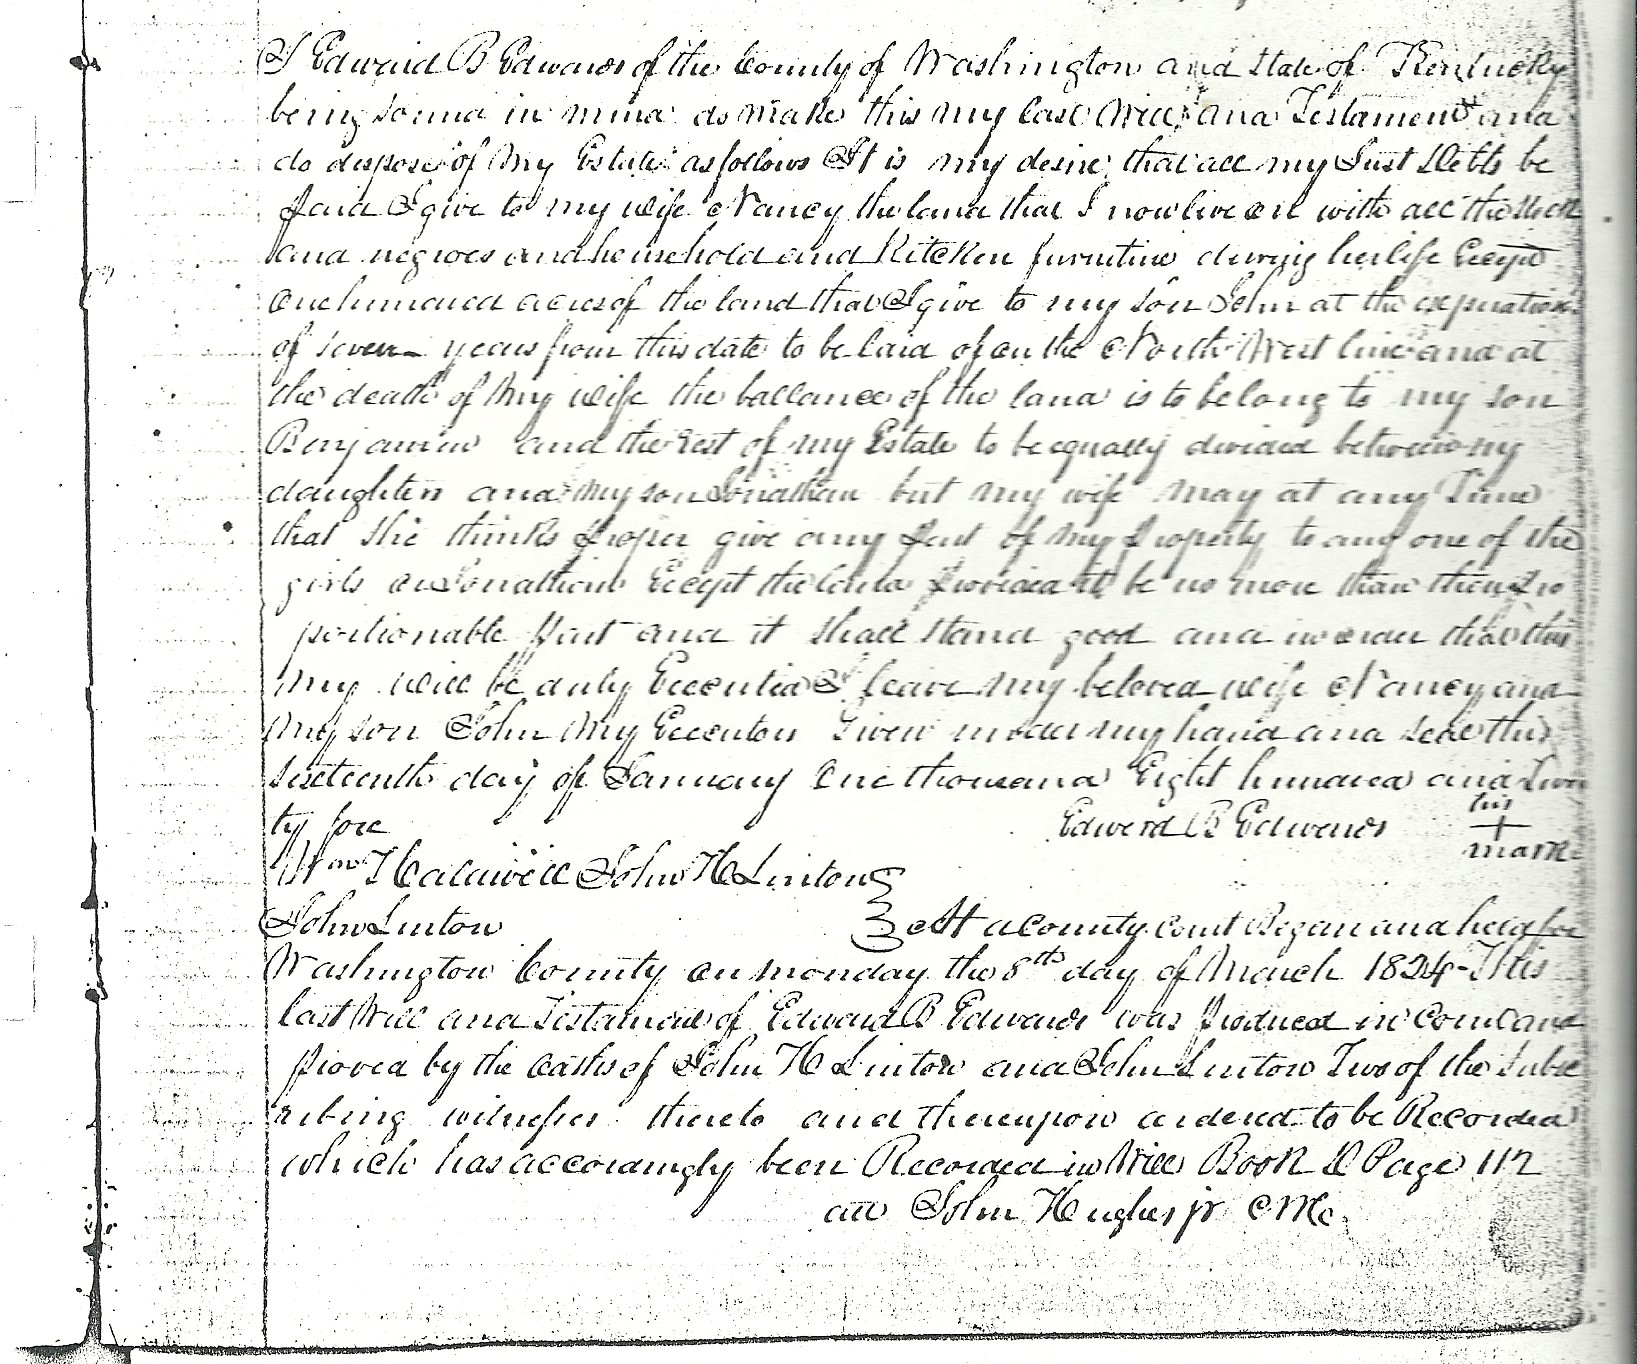 I Edward B Edwards of the County of Washington and State of Kentucky
being sound in mind do make this my last Will and Testament and
do dispose of my Estate as follows It is my desire that all my Just Debts be
paid I give to my wife Nancy the land that I now live on with all the stock
and negroes and household and Kitchen furniture during her life Except
one hundred acres of the land that I give to my son John at the expiration
of seven years from this date to be laid of on the North West line and at
the death of my wife the ballance of the land is to belong to my son
Benjamin and the rest of my Estate to be equally divided between my
daughters and my son Jonathan but my wife may at any Time
that she thinks proper give any part of my property to any one of the
girls or Jonathan Except the land provided it be no more than their pro
portionable part and it shall stand good and in order that this
my will be duly Executed I leave my beloved wife Nancy and
my son John my Executors Given under my hand and seale this
sixteenth day of January One thousand Eight hundred and Twen
ty fore Edward B Edwards his + mark
Wm Caldwell John H Linton
John Linton At a County Court Began and held for
Washington County on monday the 8th day of March 1824 - This
last Will and Testament of Edward B Edwards was produced in Court and
proved by the oaths of John H Linton and John Linton Two of the subsc
ribing witnesses thereto and thereupon ordered to be Recorded
which has accordingly been Recorded in Will Book D Page 112
att John Hughes jr